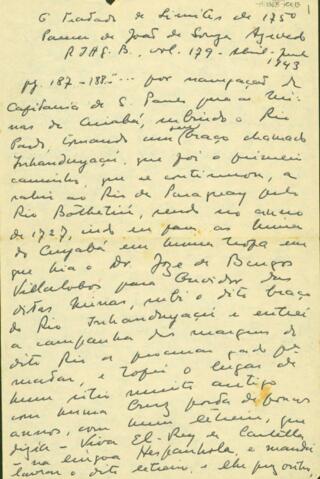 O Tratado de Limites de 1750
Parecer de João de Souza Azevedo
R.I.H.G.B., vol. 179 - Abril-Junho
1943
pg. 187-188: "... por navegação da
Capitania de S. Paulo para as Mi-
nas de Cuiabá, subindo o Rio
Pardo, tomando um braço chamado
Inhanduyaçú, que foi o primeiro
caminho, que se continuou, a
sahir ao Rio de Paraguay pello
Rio Bothetiú, sendo no anno
de 1727, indo eu para as minas
do Cuyabá em huma tropa em
que hia o Dr. Joze de Burgos
Villalobos para Ouvidor das
ditas Minas, subi o dito braço
do Rio Inhanduyaçú e entrei
a campanha das margens do
dito Rio a procurar gado pª
matar, e topei o lugar de
hum sitio muito antigo
com huma Cruz de poucos
annos, com hum letreiro, que
dizia - Viva El-Rey de Castella
- na lingua Hespanhola, e mandei
o dito letreiro, e lhe puz outro,